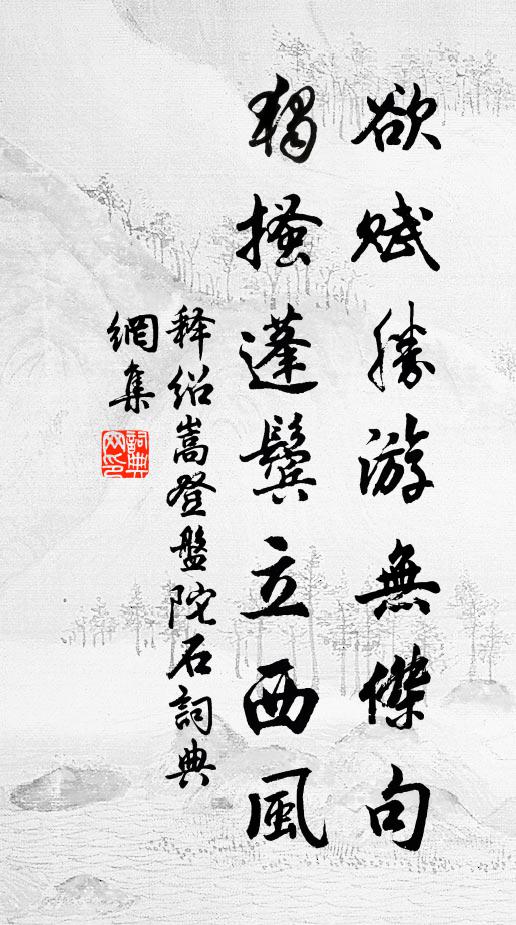 欲賦勝游無傑句
獨搔蓬鬢立西風
释绍嵩登盤陀石詞典
網集
詞典網印